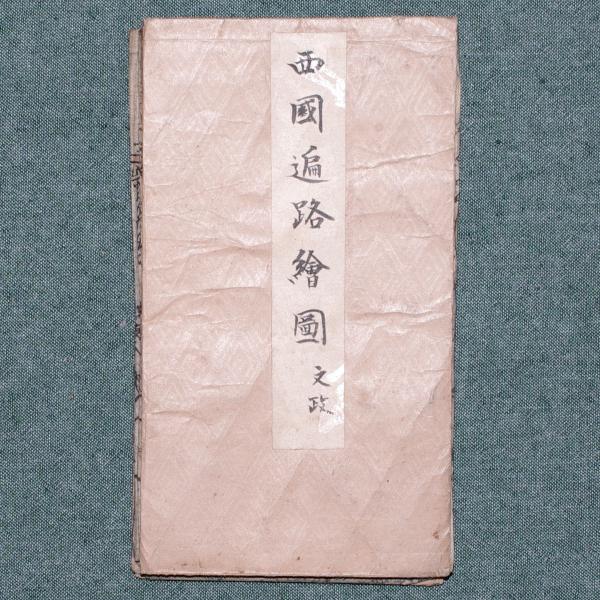 西國遍路繪圖
文政